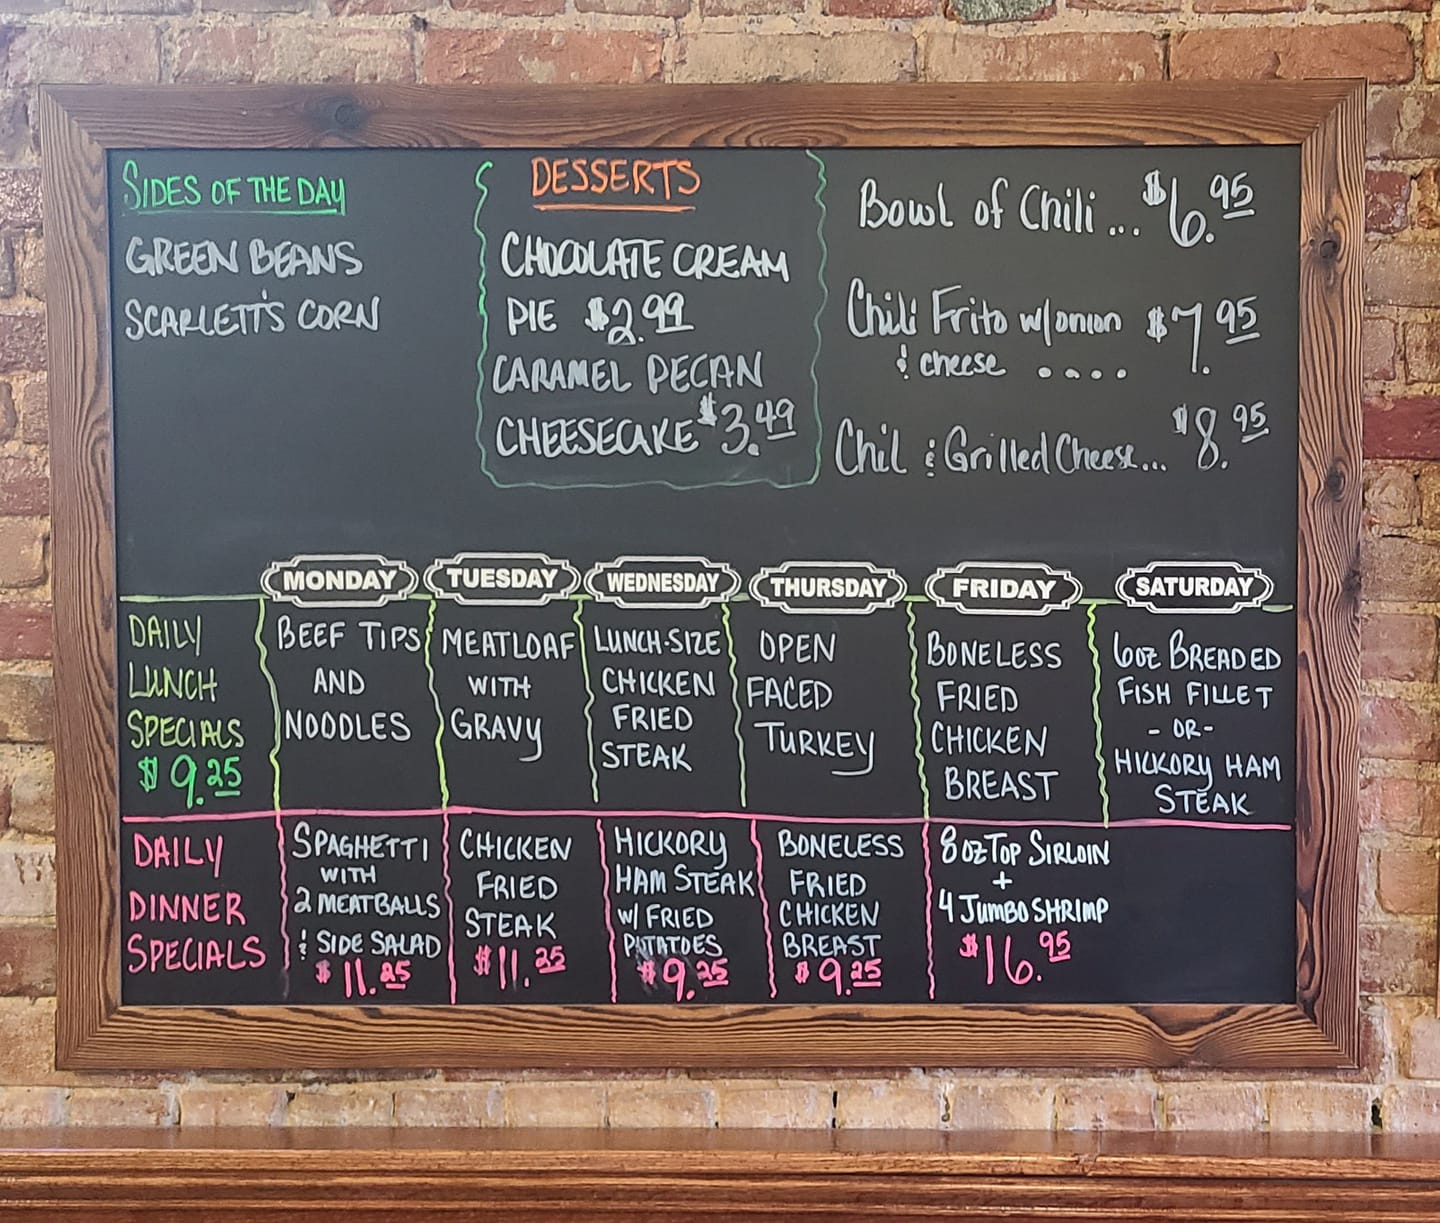 SIDES OF THE DAY
GREEN BEANS
SCARLETT'S CORN
DESSERTS
CHOCOLATE CREAM
PIE $2.99
CARAMEL PECAN
CHEESECAKE $3.49
Bowl of Chili ... $6.95
Chili Frito w/onion $7.95
& cheese ....
Chil & Grilled Cheese... $8.95
MONDAY TUESDAY WEDNESDAY THURSDAY FRIDAY SATURDAY
DAILY
LUNCH
SPECIALS
$9.25
BEEF TIPS
AND
NOODLES
MEATLOAF
WITH
GRAVY
LUNCH-SIZE
CHICKEN
FRIED
STEAK
OPEN
FACED
TURKEY
BONELESS
FRIED
CHICKEN
BREAST
6oz BREADED
FISH FILLET
- OR -
HICKORY HAM
STEAK
DAILY
DINNER
SPECIALS
SPAGHETTI
WITH
2 MEATBALLS
& SIDE SALAD
$11.25
CHICKEN
FRIED
STEAK
$11.25
HICKORY
HAM STEAK
W/ FRIED
POTATOES
$9.25
BONELESS
FRIED
CHICKEN
BREAST
$9.25
8 oz TOP SIRLOIN
+
4 JUMBO SHRIMP
$16.95